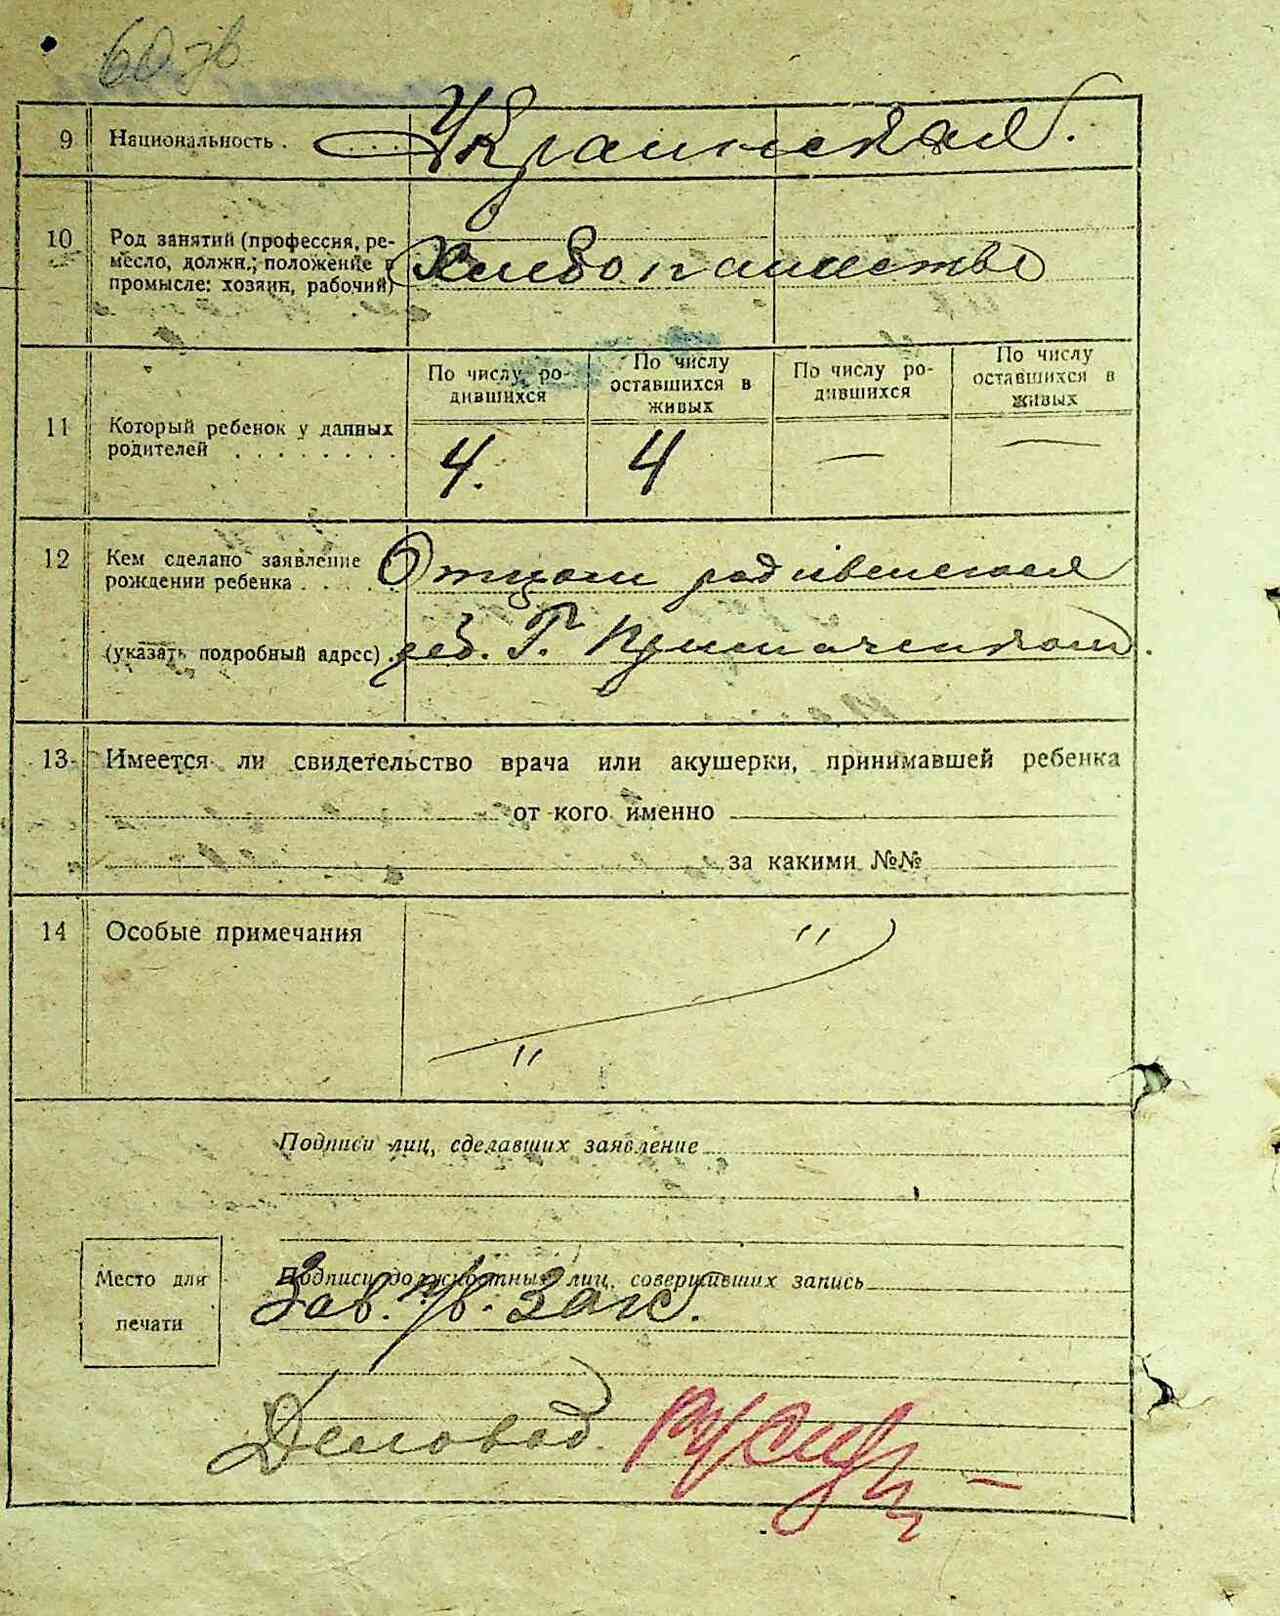 60 зв
9 Национальность . Украинская.
10 Род занятий (профессия, ре-
месло, должн.; положение в
промысле: хозяин, рабочий)
Хлебопашество
По числу ро-
дившихся
По числу
оставшихся в
живых
По числу ро-
дившихся
По числу
оставшихся в
живых
11 Который ребенок у данных
родителей . . . . . . . .
4. 4 — —
12 Кем сделано заявление
рождении ребенка . . . . .
Отцом
(указать подробный адрес) .
реб. Г.
13 Имеется ли свидетельство врача или акушерки, принимавшей ребенка
от кого именно
за какими №№
14 Особые примечания
"
"
Подписи лиц, сделавших заявление
Место для
печати
Подписи должностных лиц, совершивших запись
Зав. п/в. Загс.
Деловод.